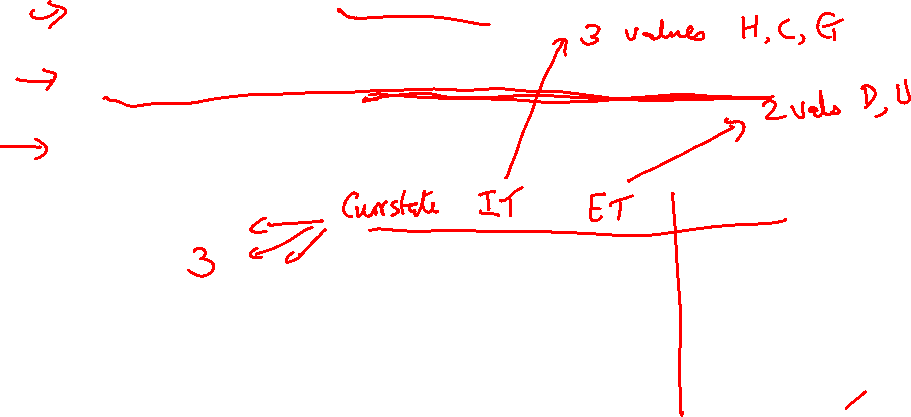 3 values H, C, G
2 vals D, U
Currstate IT ET
3